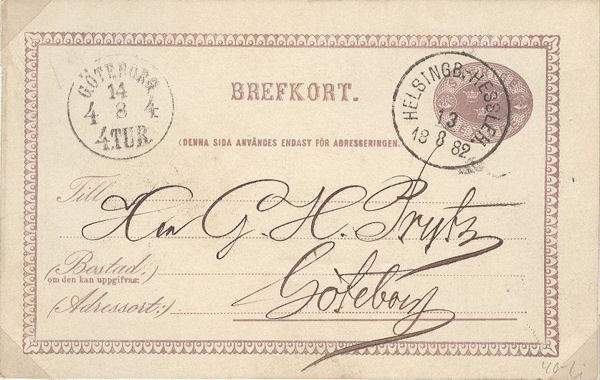 GÖTEBORG
14
4 8 4
4.TUR.
BREFKORT.
HELSINGB.-HESSLEH.
13
18 8 82
(DENNA SIDA ANVÄNDES ENDAST FÖR ADRESSERINGEN.)
Till
Herr G. H. Prytz
(Bostad,)
om den kan uppgifvas:
Göteborg
(Adressort:)